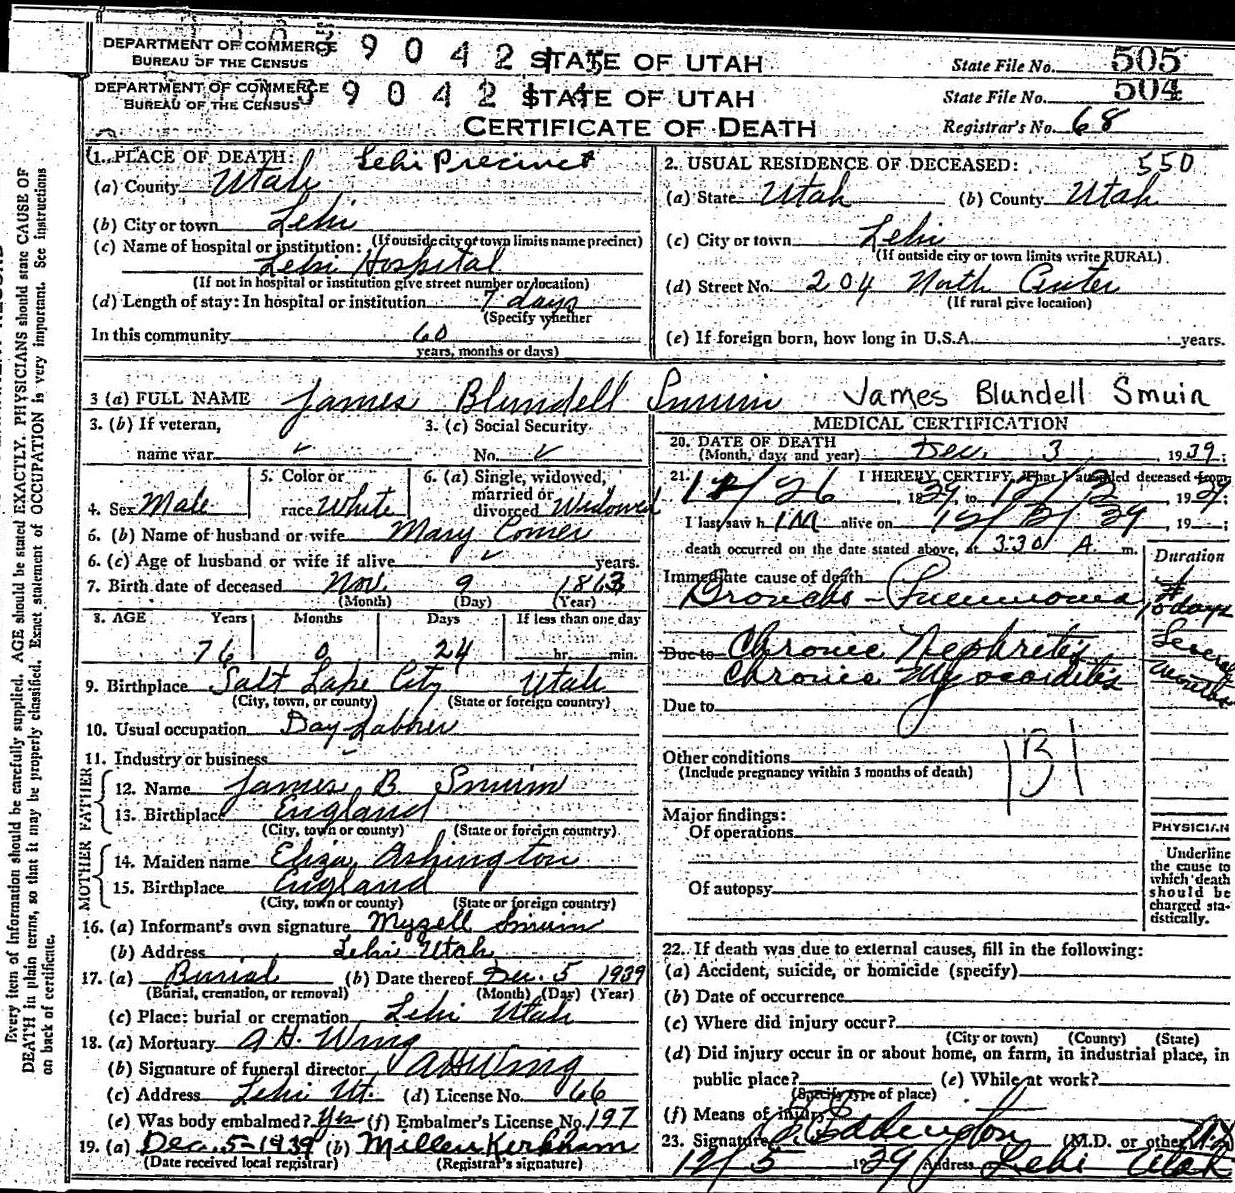 DEPARTMENT OF COMMERCE 39042 STATE OF UTAH State File No. 505
BUREAU OF THE CENSUS
DEPARTMENT OF COMMERCE 39042 STATE OF UTAH State File No. 504
BUREAU OF THE CENSUS
CERTIFICATE OF DEATH Registrar's No. 68
1. PLACE OF DEATH: Lehi Precinct
(a) County Utah
(b) City or town Lehi
(If outside city or town limits name precinct)
(c) Name of hospital or institution:
Lehi Hospital
(If not in hospital or institution give street number or location)
(d) Length of stay: In hospital or institution 7 days
(Specify whether
In this community 60
years, months or days)
2. USUAL RESIDENCE OF DECEASED: 550
(a) State Utah (b) County Utah
(c) City or town Lehi
(If outside city or town limits write RURAL)
(d) Street No. 204 North Center
(If rural give location)
(e) If foreign born, how long in U.S.A. years.
3 (a) FULL NAME James Blundell Smuin James Blundell Smuin
3. (b) If veteran, 3. (c) Social Security
name war No.
4. Sex Male 5. Color or race White 6. (a) Single, widowed, married or divorced Widowed
6. (b) Name of husband or wife Mary Comer
6. (c) Age of husband or wife if alive years.
7. Birth date of deceased Nov. 9 1863
(Month) (Day) (Year)
8. AGE Years Months Days If less than one day
76 0 24 hr. min.
9. Birthplace Salt Lake City Utah
(City, town, or county) (State or foreign country)
10. Usual occupation Day Labher
11. Industry or business
FATHER
12. Name James B. Smuin
13. Birthplace England
(City, town or county) (State or foreign country)
MOTHER
14. Maiden name Eliza Ashington
15. Birthplace England
(City, town or county) (State or foreign country)
16. (a) Informant's own signature Myzell Smuin
(b) Address Lehi Utah
17. (a) Burial (b) Date thereof Dec. 5 1939
(Burial, cremation, or removal) (Month) (Day) (Year)
(c) Place: burial or cremation Lehi Utah
18. (a) Mortuary A H. Wing
(b) Signature of funeral director A H Wing
(c) Address Lehi Ut. (d) License No. 66
(e) Was body embalmed? Yes (f) Embalmer's License No. 197
19. (a) Dec. 5-1939 (b) Millen Kirkham
(Date received local registrar) (Registrar's signature)
MEDICAL CERTIFICATION
20. DATE OF DEATH Dec. 3, 1939;
(Month, day, and year)
21. I HEREBY CERTIFY, That I attended deceased from
I last saw him alive on 12/3/39, 19 ;
death occurred on the date stated above, at 3:30 A. m. Duration
Immediate cause of death
Broncho-Pneumonia 10 days
Due to Chronic Nephritis Several
Chronic Myocarditis months
Due to
Other conditions
(Include pregnancy within 3 months of death)
Major findings:
Of operations
Of autopsy
PHYSICIAN
Underline
the cause to
which death
should be
charged sta-
tistically.
22. If death was due to external causes, fill in the following:
(a) Accident, suicide, or homicide (specify)
(b) Date of occurrence
(c) Where did injury occur?
(City or town) (County) (State)
(d) Did injury occur in or about home, on farm, in industrial place, in
public place? (e) While at work?
(Specify type of place)
(f) Means of injury
23. Signature Eddington (M.D. or other)
12/5 1939 Address Lehi Utah
Every item of information should be carefully supplied. AGE should be stated EXACTLY. PHYSICIANS should state CAUSE OF
DEATH in plain terms, so that it may be properly classified. Exact statement of OCCUPATION is very important. See instructions
on back of certificate.